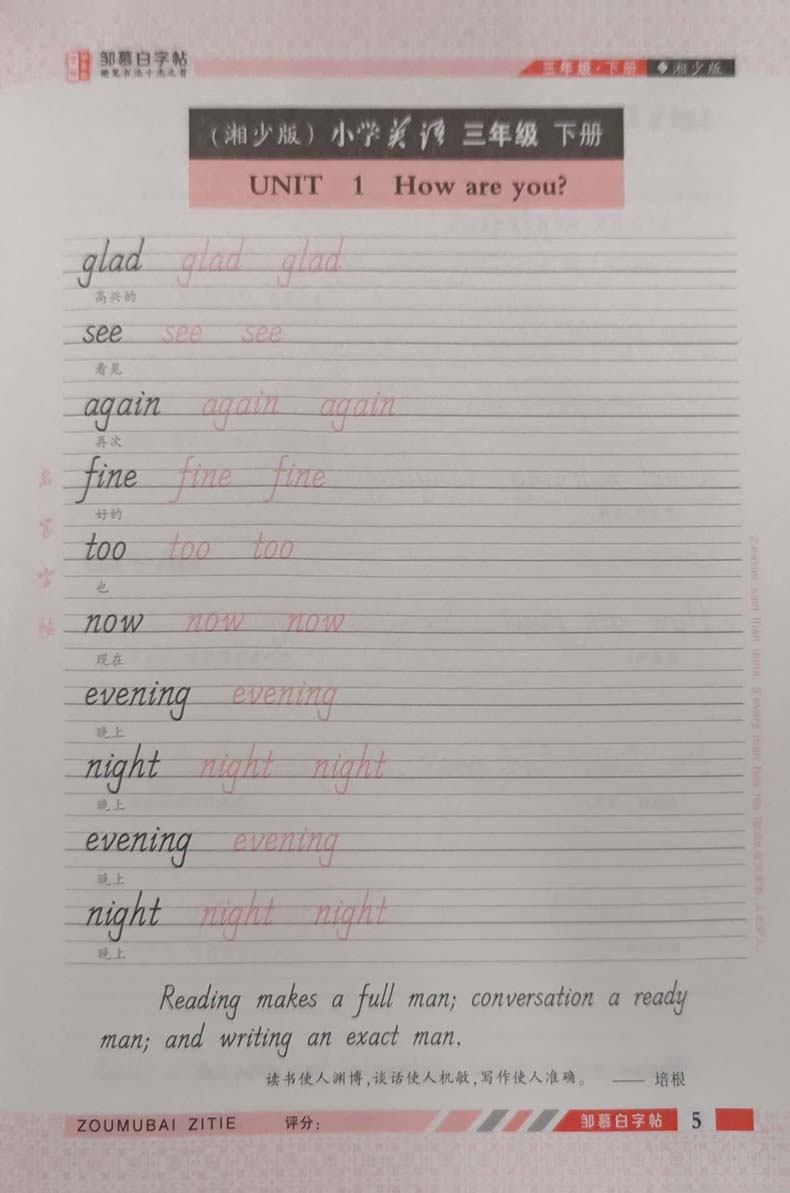 邹慕白字帖
硬笔书法十杰之首
三年级·下册 ◆湘少版
（湘少版）小学英语 三年级 下册
UNIT 1 How are you?
glad glad glad
高兴的
see see see
看见
again again again
再次
fine fine fine
好的
too too too
也
now now now
现在
evening evening
晚上
night night night
晚上
evening evening
晚上
night night night
晚上
名家字帖
Reading makes a full man; conversation a ready
man; and writing an exact man.
读书使人渊博，谈话使人机敏，写作使人准确。 —— 培根
ZOUMUBAI ZITIE 评分： 邹慕白字帖 5